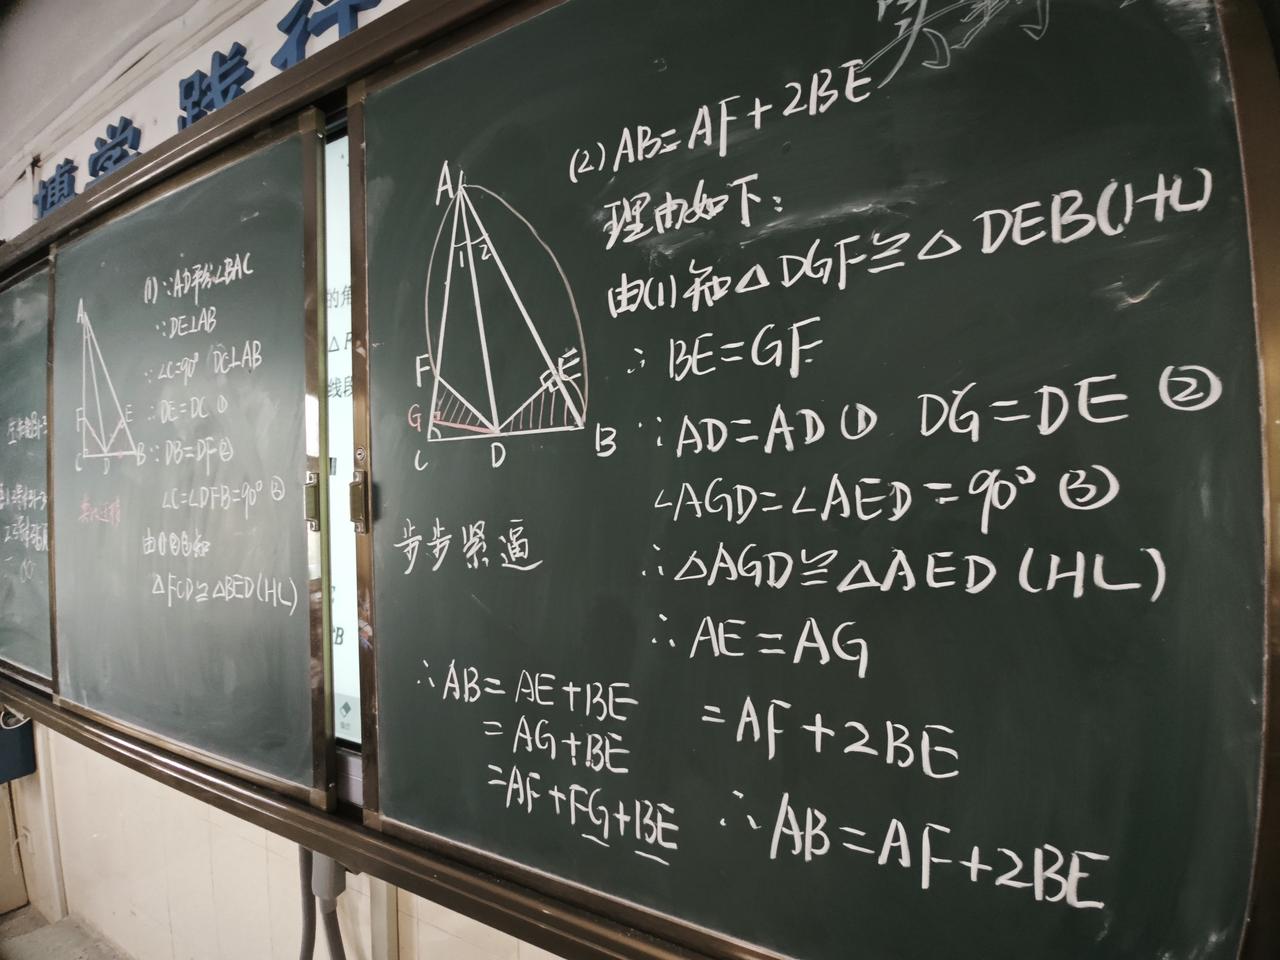 博学 践行
(1) ∵AD平分∠BAC
∵DE⊥AB
∵∠C=90° DC⊥AB
∴DE=DC ①
∵DB=DF②
∠C=∠DFB=90° ③
由①②③知
△FCD≌△BED(HL)
A
F
E
C
D
B
的角
△F
线段
B
(2) AB=AF+2BE
理由如下:
由(1)知△DGF≌△DEB(HL)
∴BE=GF
∵AD=AD① DG=DE ②
∠AGD=∠AED=90° ③
∴△AGD≌△AED (HL)
∴AE=AG
∴AB=AE+BE
=AG+BE
=AF+FG+BE
=AF+2BE
∴AB=AF+2BE
A
1 2
F
E
G
C
D
B
步步紧逼